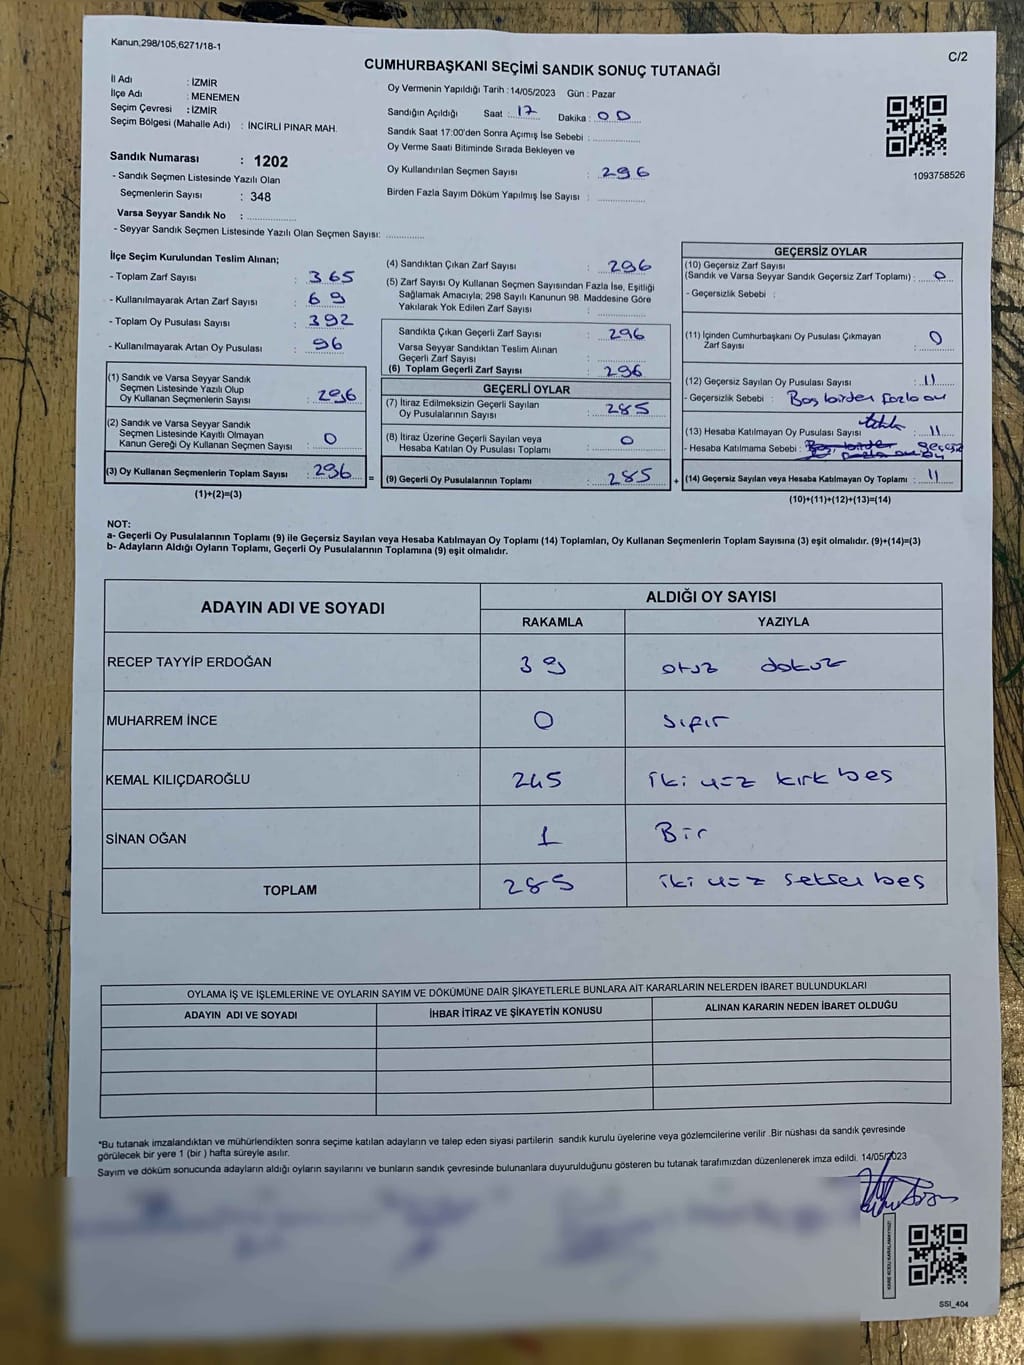 Kanun,298/105,6271/18-1
C/2
CUMHURBAŞKANI SEÇİMİ SANDIK SONUÇ TUTANAĞI
İl Adı : İZMİR
İlçe Adı : MENEMEN
Seçim Çevresi : İZMİR
Seçim Bölgesi (Mahalle Adı) : İNCİRLİ PINAR MAH.
Sandık Numarası : 1202
- Sandık Seçmen Listesinde Yazılı Olan
Seçmenlerin Sayısı : 348
Varsa Seyyar Sandık No : ..............
- Seyyar Sandık Seçmen Listesinde Yazılı Olan Seçmen Sayısı: ...........
Oy Vermenin Yapıldığı Tarih : 14/05/2023 Gün : Pazar
Sandığın Açıldığı Saat : 17 Dakika : 00
Sandık Saat 17:00'den Sonra Açımış İse Sebebi : ..............
Oy Verme Saati Bitiminde Sırada Bekleyen ve
Oy Kullandırılan Seçmen Sayısı : 296
Birden Fazla Sayım Döküm Yapılmış İse Sayısı : ..............
1093758526
İlçe Seçim Kurulundan Teslim Alınan;
- Toplam Zarf Sayısı : 365
- Kullanılmayarak Artan Zarf Sayısı : 69
- Toplam Oy Pusulası Sayısı : 392
- Kullanılmayarak Artan Oy Pusulası : 96
(1) Sandık ve Varsa Seyyar Sandık
Seçmen Listesinde Yazılı Olup
Oy Kullanan Seçmenlerin Sayısı : 296
(2) Sandık ve Varsa Seyyar Sandık
Seçmen Listesinde Kayıtlı Olmayan
Kanun Gereği Oy Kullanan Seçmen Sayısı : 0
(3) Oy Kullanan Seçmenlerin Toplam Sayısı : 296 =
(1)+(2)=(3)
(4) Sandıktan Çıkan Zarf Sayısı : 296
(5) Zarf Sayısı Oy Kullanan Seçmen Sayısından Fazla İse, Eşitliği
Sağlamak Amacıyla; 298 Sayılı Kanunun 98. Maddesine Göre
Yakılarak Yok Edilen Zarf Sayısı : ..............
Sandıkta Çıkan Geçerli Zarf Sayısı : 296
Varsa Seyyar Sandıktan Teslim Alınan
Geçerli Zarf Sayısı : ..............
(6) Toplam Geçerli Zarf Sayısı : 296
GEÇERLİ OYLAR
(7) İtiraz Edilmeksizin Geçerli Sayılan
Oy Pusulalarının Sayısı : 285
(8) İtiraz Üzerine Geçerli Sayılan veya
Hesaba Katılan Oy Pusulası Toplamı : 0
(9) Geçerli Oy Pusulalarının Toplamı : 285 +
GEÇERSİZ OYLAR
(10) Geçersiz Zarf Sayısı
(Sandık ve Varsa Seyyar Sandık Geçersiz Zarf Toplamı) : 0
- Geçersizlik Sebebi :
(11) İçinden Cumhurbaşkanı Oy Pusulası Çıkmayan
Zarf Sayısı : 0
(12) Geçersiz Sayılan Oy Pusulası Sayısı : 11
- Geçersizlik Sebebi : Boş birden fazla oy
(13) Hesaba Katılmayan Oy Pusulası Sayısı : 11
- Hesaba Katılmama Sebebi : geçersiz oy
(14) Geçersiz Sayılan veya Hesaba Katılmayan Oy Toplamı : 11
(10)+(11)+(12)+(13)=(14)
NOT:
a- Geçerli Oy Pusulalarının Toplamı (9) ile Geçersiz Sayılan veya Hesaba Katılmayan Oy Toplamı (14) Toplamları, Oy Kullanan Seçmenlerin Toplam Sayısına (3) eşit olmalıdır. (9)+(14)=(3)
b- Adayların Aldığı Oyların Toplamı, Geçerli Oy Pusulalarının Toplamına (9) eşit olmalıdır.
ADAYIN ADI VE SOYADI ALDIĞI OY SAYISI
RAKAMLA YAZIYLA
RECEP TAYYİP ERDOĞAN 39 otuz dokuz
MUHARREM İNCE 0 sıfır
KEMAL KILIÇDAROĞLU 245 iki yüz kırk beş
SİNAN OĞAN 1 Bir
TOPLAM 285 iki yüz seksen beş
OYLAMA İŞ VE İŞLEMLERİNE VE OYLARIN SAYIM VE DÖKÜMÜNE DAİR ŞİKAYETLERLE BUNLARA AİT KARARLARIN NELERDEN İBARET BULUNDUKLARI
ADAYIN ADI VE SOYADI İHBAR İTİRAZ VE ŞİKAYETİN KONUSU ALINAN KARARIN NEDEN İBARET OLDUĞU
*Bu tutanak imzalandıktan ve mühürlendikten sonra seçime katılan adayların ve talep eden siyasi partilerin sandık kurulu üyelerine veya gözlemcilerine verilir .Bir nüshası da sandık çevresinde
görülecek bir yere 1 (bir ) hafta süreyle asılır.
Sayım ve döküm sonucunda adayların aldığı oyların sayılarını ve bunların sandık çevresinde bulunanlara duyurulduğunu gösteren bu tutanak tarafımızdan düzenlenerek imza edildi. 14/05/2023
KARE KODU KARALAMAYINIZ!
SSI_404